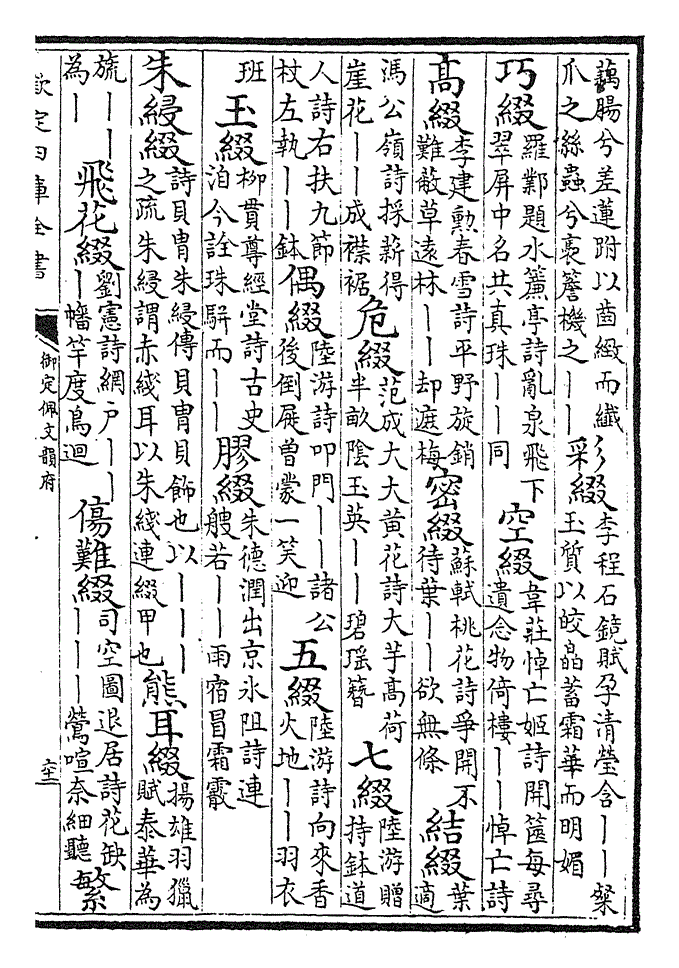 藕腸兮差蓮跗以齒緻而纖
爪之絲蟲兮裹簷機之丨丨
彩綴
李程石鏡賦孕清瑩含丨丨粲
玉質以皎皛蓄霜華而明媚
巧綴
羅鄴題水簾亭詩亂泉飛下
翠屏中名共真珠丨丨同
空綴
韋莊悼亡姬詩開篋每尋
遺念物倚樓丨丨悼亡詩
高綴
李建勳春雪詩平野旋銷
難散草遠林丨丨却遮梅
密綴
蘇軾桃花詩爭開不
待葉丨丨欲無條
結綴
葉
適
馮公嶺詩採薪得
崖花丨丨成襟裾
危綴
范成大大黃花詩大芋高荷
半畝陰玉英丨丨碧瑤簪
七綴
陸游贈
持鉢道
人詩右扶九節
杖左執丨丨鉢
偶綴
陸游詩叩門丨丨諸公
後倒屐曾蒙一笑迎
五綴
陸游詩向來香
火地丨丨羽衣
班
玉綴
柳貫尊經堂詩古史
洎今詮珠駢而丨丨
膠綴
朱德潤出京氷阻詩連
艘若丨丨雨宿冒霜霰
朱綅綴
詩貝胄朱綅傳貝胄貝飾也以丨丨丨
之疏朱綅謂赤綫耳以朱綫連綴甲也
熊耳綴
揚雄羽獵
賦泰華為
旒丨丨
為丨
飛花綴
劉憲詩網户丨丨
丨幡竿度鳥迴
傷難綴
司空圖退居詩花缺
丨丨丨鶯喧奈細聽
繁
欽定四庫全書
御定佩文韻府
六十二